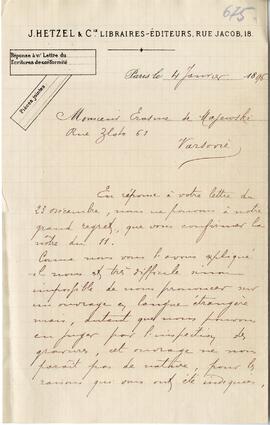 675
J. HETZEL & Cie LIBRAIRES-ÉDITEURS, RUE JACOB, 18.
Réponse à vtre Lettre du
Ecritures de conformité
Pièces jointes
Paris le 4 Janvier 1896
Monsieur Erasme de Majewski
Rue Zlota 61
Varsovie
En réponse à votre lettre du
23 décembre, nous ne pouvons à notre
grand regret, que vous confirmer la
nôtre du 11.
Comme nous vous l'avons expliqué
il nous est très difficile sinon
impossible de nous prononcer sur
un ouvrage en langue étrangère
mais, autant que nous pouvons
en juger par l'inspection des
gravures, cet ouvrage ne nous
paraît pas de nature, pour les
raisons que vous ont été indiquées,